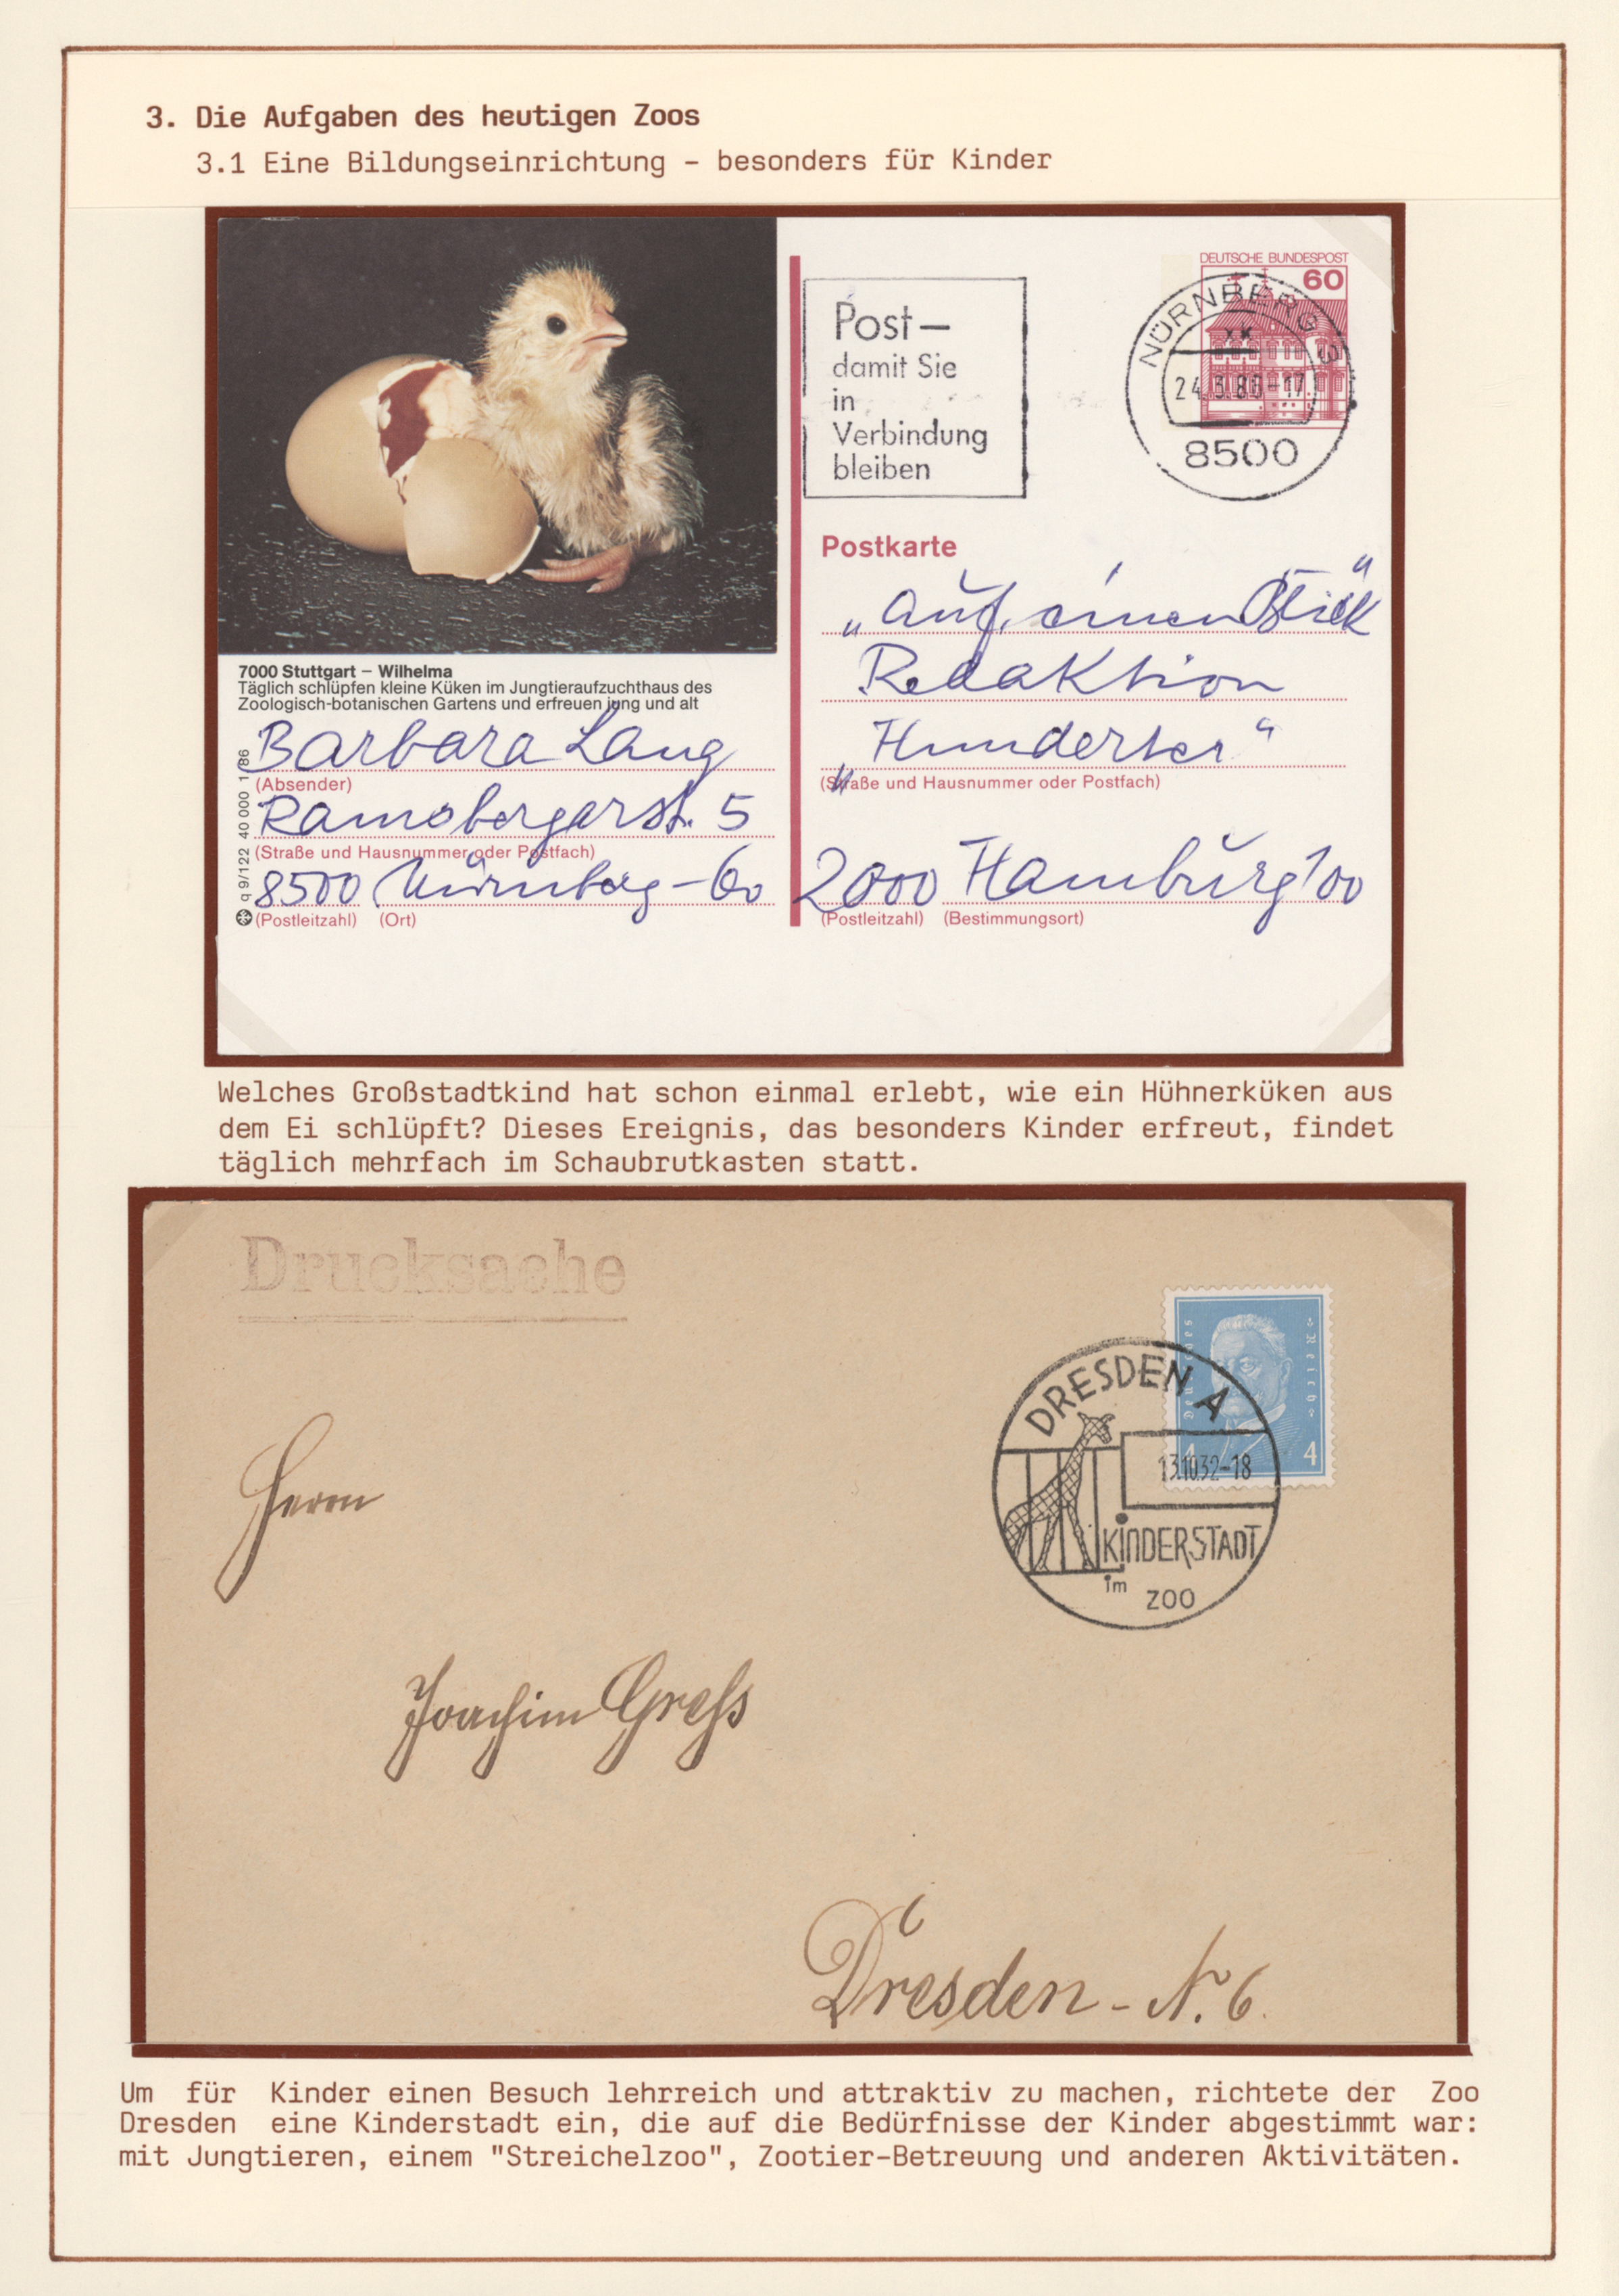 3. Die Aufgaben des heutigen Zoos
3.1 Eine Bildungseinrichtung - besonders für Kinder
DEUTSCHE BUNDESPOST
60
NÜRNBERG 3
xk
24.3.86-17
8500
Post –
damit Sie
in
Verbindung
bleiben
Postkarte
„Auf einen Blick"
Redaktion
„Hunderter"
(Straße und Hausnummer oder Postfach)
2000 Hamburg 100
(Postleitzahl) (Bestimmungsort)
7000 Stuttgart – Wilhelma
Täglich schlüpfen kleine Küken im Jungtieraufzuchthaus des
Zoologisch-botanischen Gartens und erfreuen jung und alt
Barbara Lang
(Absender)
Ramsbergerstr. 5
(Straße und Hausnummer oder Postfach)
8500 Nürnberg-60
(Postleitzahl) (Ort)
q 9/122 40 000 1/86
Welches Großstadtkind hat schon einmal erlebt, wie ein Hühnerküken aus
dem Ei schlüpft? Dieses Ereignis, das besonders Kinder erfreut, findet
täglich mehrfach im Schaubrutkasten statt.
Drucksache
Deutsches Reich
4 4
DRESDEN A
13.10.32-18
KINDERSTADT
im ZOO
Herrn
Joachim Greß
Dresden - N. 6.
Um für Kinder einen Besuch lehrreich und attraktiv zu machen, richtete der Zoo
Dresden eine Kinderstadt ein, die auf die Bedürfnisse der Kinder abgestimmt war:
mit Jungtieren, einem "Streichelzoo", Zootier-Betreuung und anderen Aktivitäten.